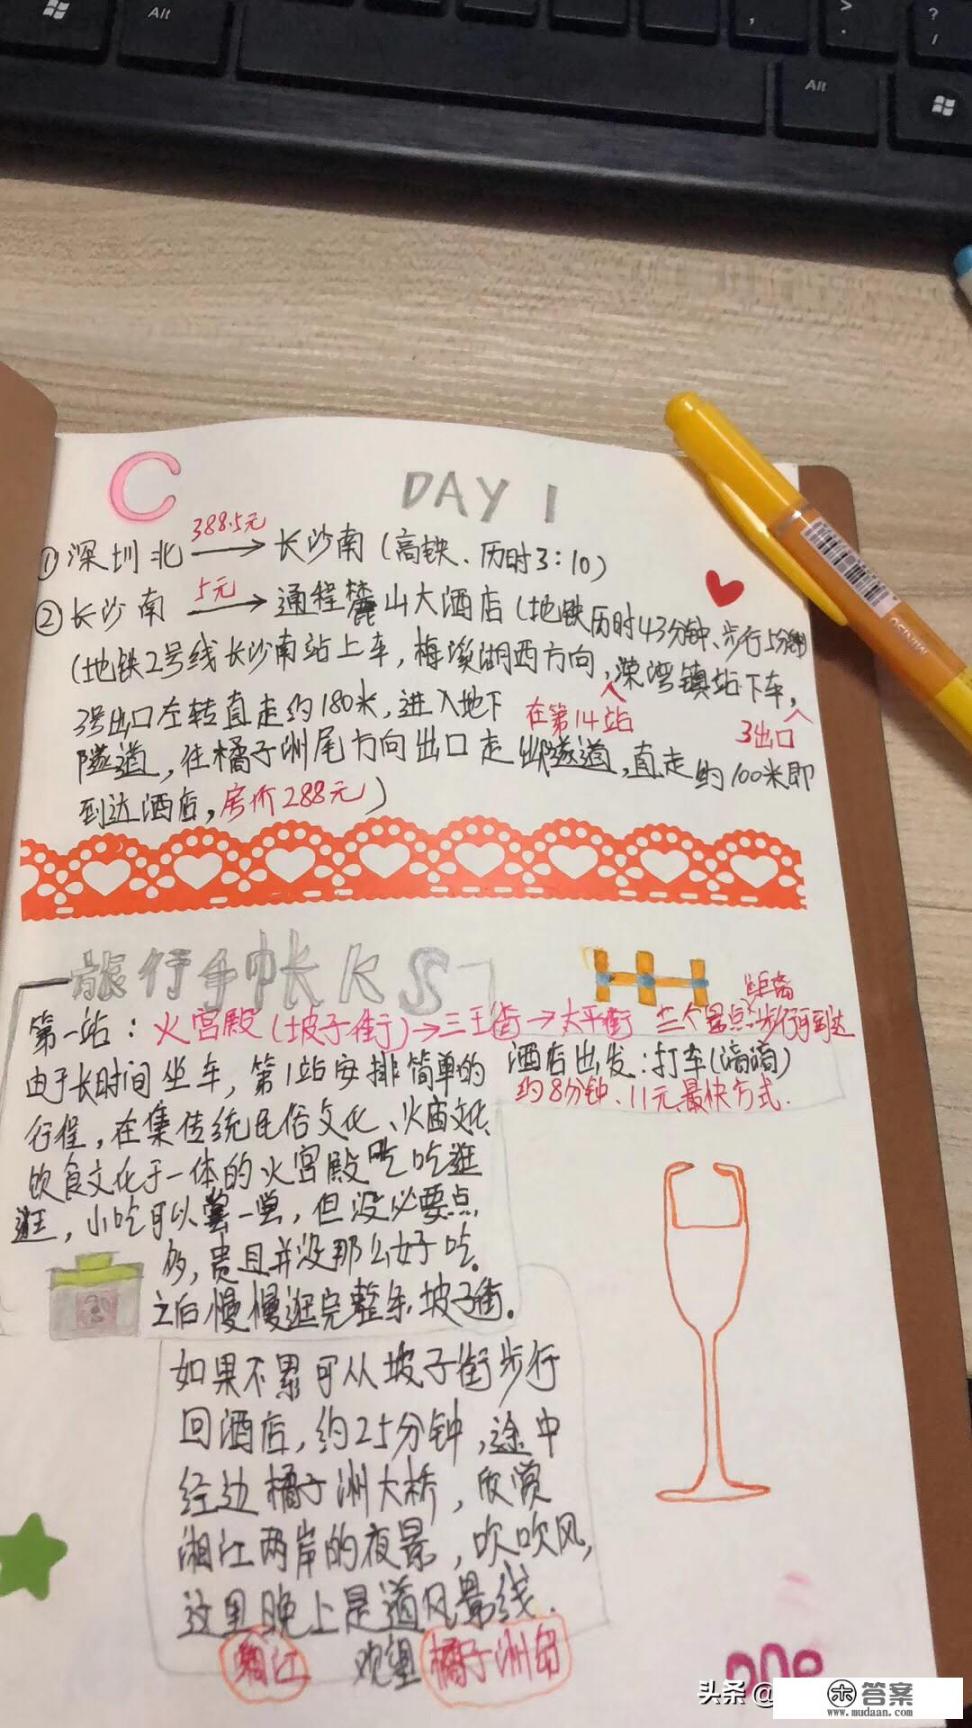 Alt
Alt
C
DAY 1
388.5元
①深圳北→长沙南(高铁、历时3:10)
5元
②长沙南→通程麓山大酒店(地铁历时43分钟、步行5分钟)
(地铁2号线长沙南站上车,梅溪湖西方向,溁湾镇站下车,
在第14站
3号出口左转直走约180米,进入地下
3出口
隧道,往橘子洲尾方向出口走出隧道,直走约100米即
到达酒店,房价288元)
旅行手帐KKS
第一站:火宫殿(坡子街)→三王街→太平街 三个景点距离步行可到达
由于长时间坐车,第1站安排简单的
酒店出发:打车(滴滴)
约8分钟、11元最快方式.
行程,在集传统民俗文化、火庙文化、
饮食文化于一体的火宫殿吃吃逛
逛,小吃可以尝一尝,但没必要点
多,贵且并没那么好吃。
之后慢慢逛完整条坡子街。
如果不累可从坡子街步行
回酒店,约25分钟,途中
经边橘子洲大桥,欣赏
湘江两岸的夜景,吹吹风,
这里晚上是道风景线.
湘江 观望 橘子洲岛
头条@
答案
www.mudaan.com